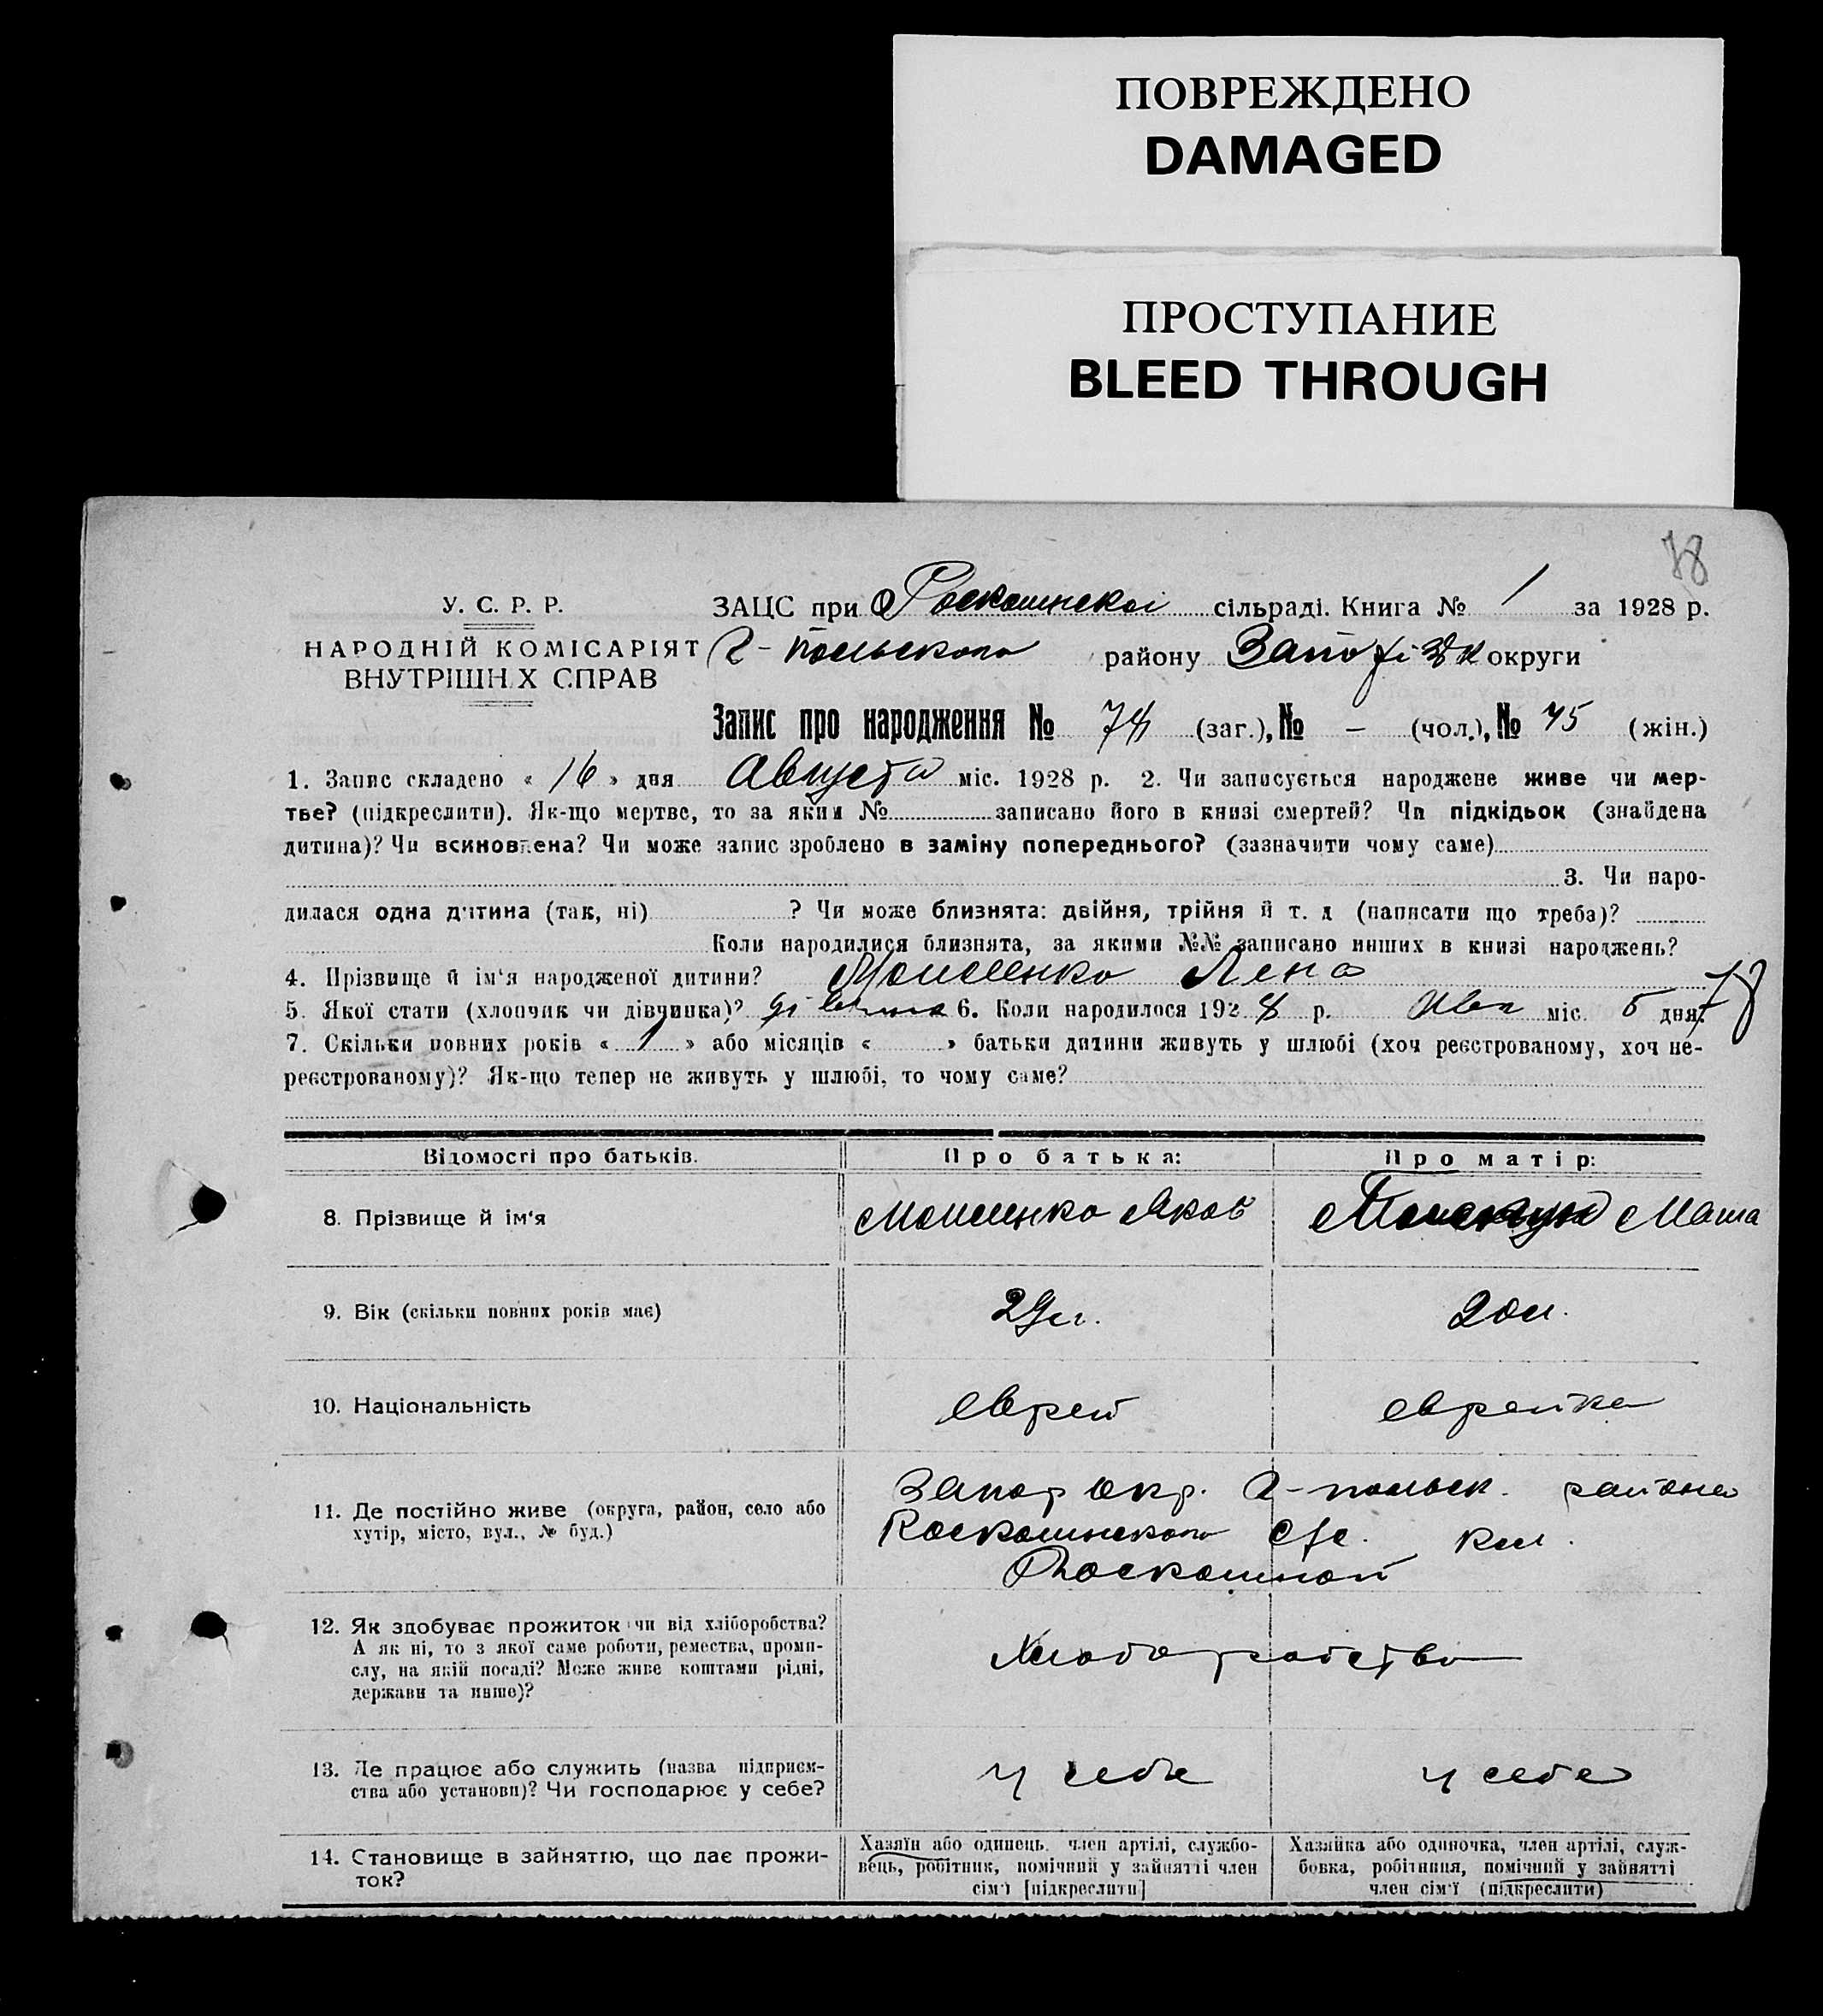 ПОВРЕЖДЕНО
DAMAGED
ПРОСТУПАНИЕ
BLEED THROUGH
78
У. С. Р. Р.
НАРОДНІЙ КОМІСАРІЯТ
ВНУТРІШНІХ СПРАВ
ЗАЦС при Роскошнскоі сільраді. Книга № 1 за 1928 р.
Г-польского району округи
Запис про народження № 78 (заг.), № – (чол.), № 45 (жін.)
1. Запис складено « 16 » дня Августа міс. 1928 р. 2. Чи записується народжене живе чи мер-
тве? (підкреслити). Як-що мертве, то за яким № записано його в книзі смертей? Чи підкідьок (знайдена
дитина)? Чи всиновлена? Чи може запис зроблено в заміну попереднього? (зазначити чому саме)
3. Чи наро-
дилася одна дитина (так, ні) ? Чи може близнята: двійня, трійня й т. д (написати що треба)?
Коли народилися близнята, за якими №№ записано инших в книзі народжень?
4. Прізвище й ім'я народженої дитини? Моисеенко Лена
5. Якої стати (хлопчик чи дівчинка)? дівчина 6. Коли народилося 1928 р. Авг міс. 5 дня? 78
7. Скільки повних років « 1 » або місяців « » батьки дитини живуть у шлюбі (хоч реєстрованому, хоч не-
реєстрованому)? Як-що тепер не живуть у шлюбі, то чому саме?
Відомості про батьків. Про батька: Про матір:
8. Прізвище й ім'я Моисеенко Яков Маша
9. Вік (скільки повних років має) 29 л. 20 л.
10. Національність еврей еврейка
11. Де постійно живе (округа, район, село або
хутір, місто, вул., № буд.)
Запор окр. Г-польск. района
Роскошнского с/с. кол.
Роскошной
12. Як здобуває прожиток чи від хліборобства?
А як ні, то з якої саме роботи, ремества, проми-
слу, на якій посаді? Може живе коштами рідні,
держави та инше)?
Хлібо робство
13. Де працює або служить (назва підприєм-
ства або установи)? Чи господарює у себе?
у себе у себе
14. Становище в зайняттю, що дає прожи-
ток?
Хазяїн або одинець, член артілі, службо-
вець, робітник, помічний у зайнятті член
сім'ї [підкреслити]
Хазяйка або одиночка, член артілі, служ-
бовка, робітниця, помічний у зайнятті
член сім'ї (підкреслити)